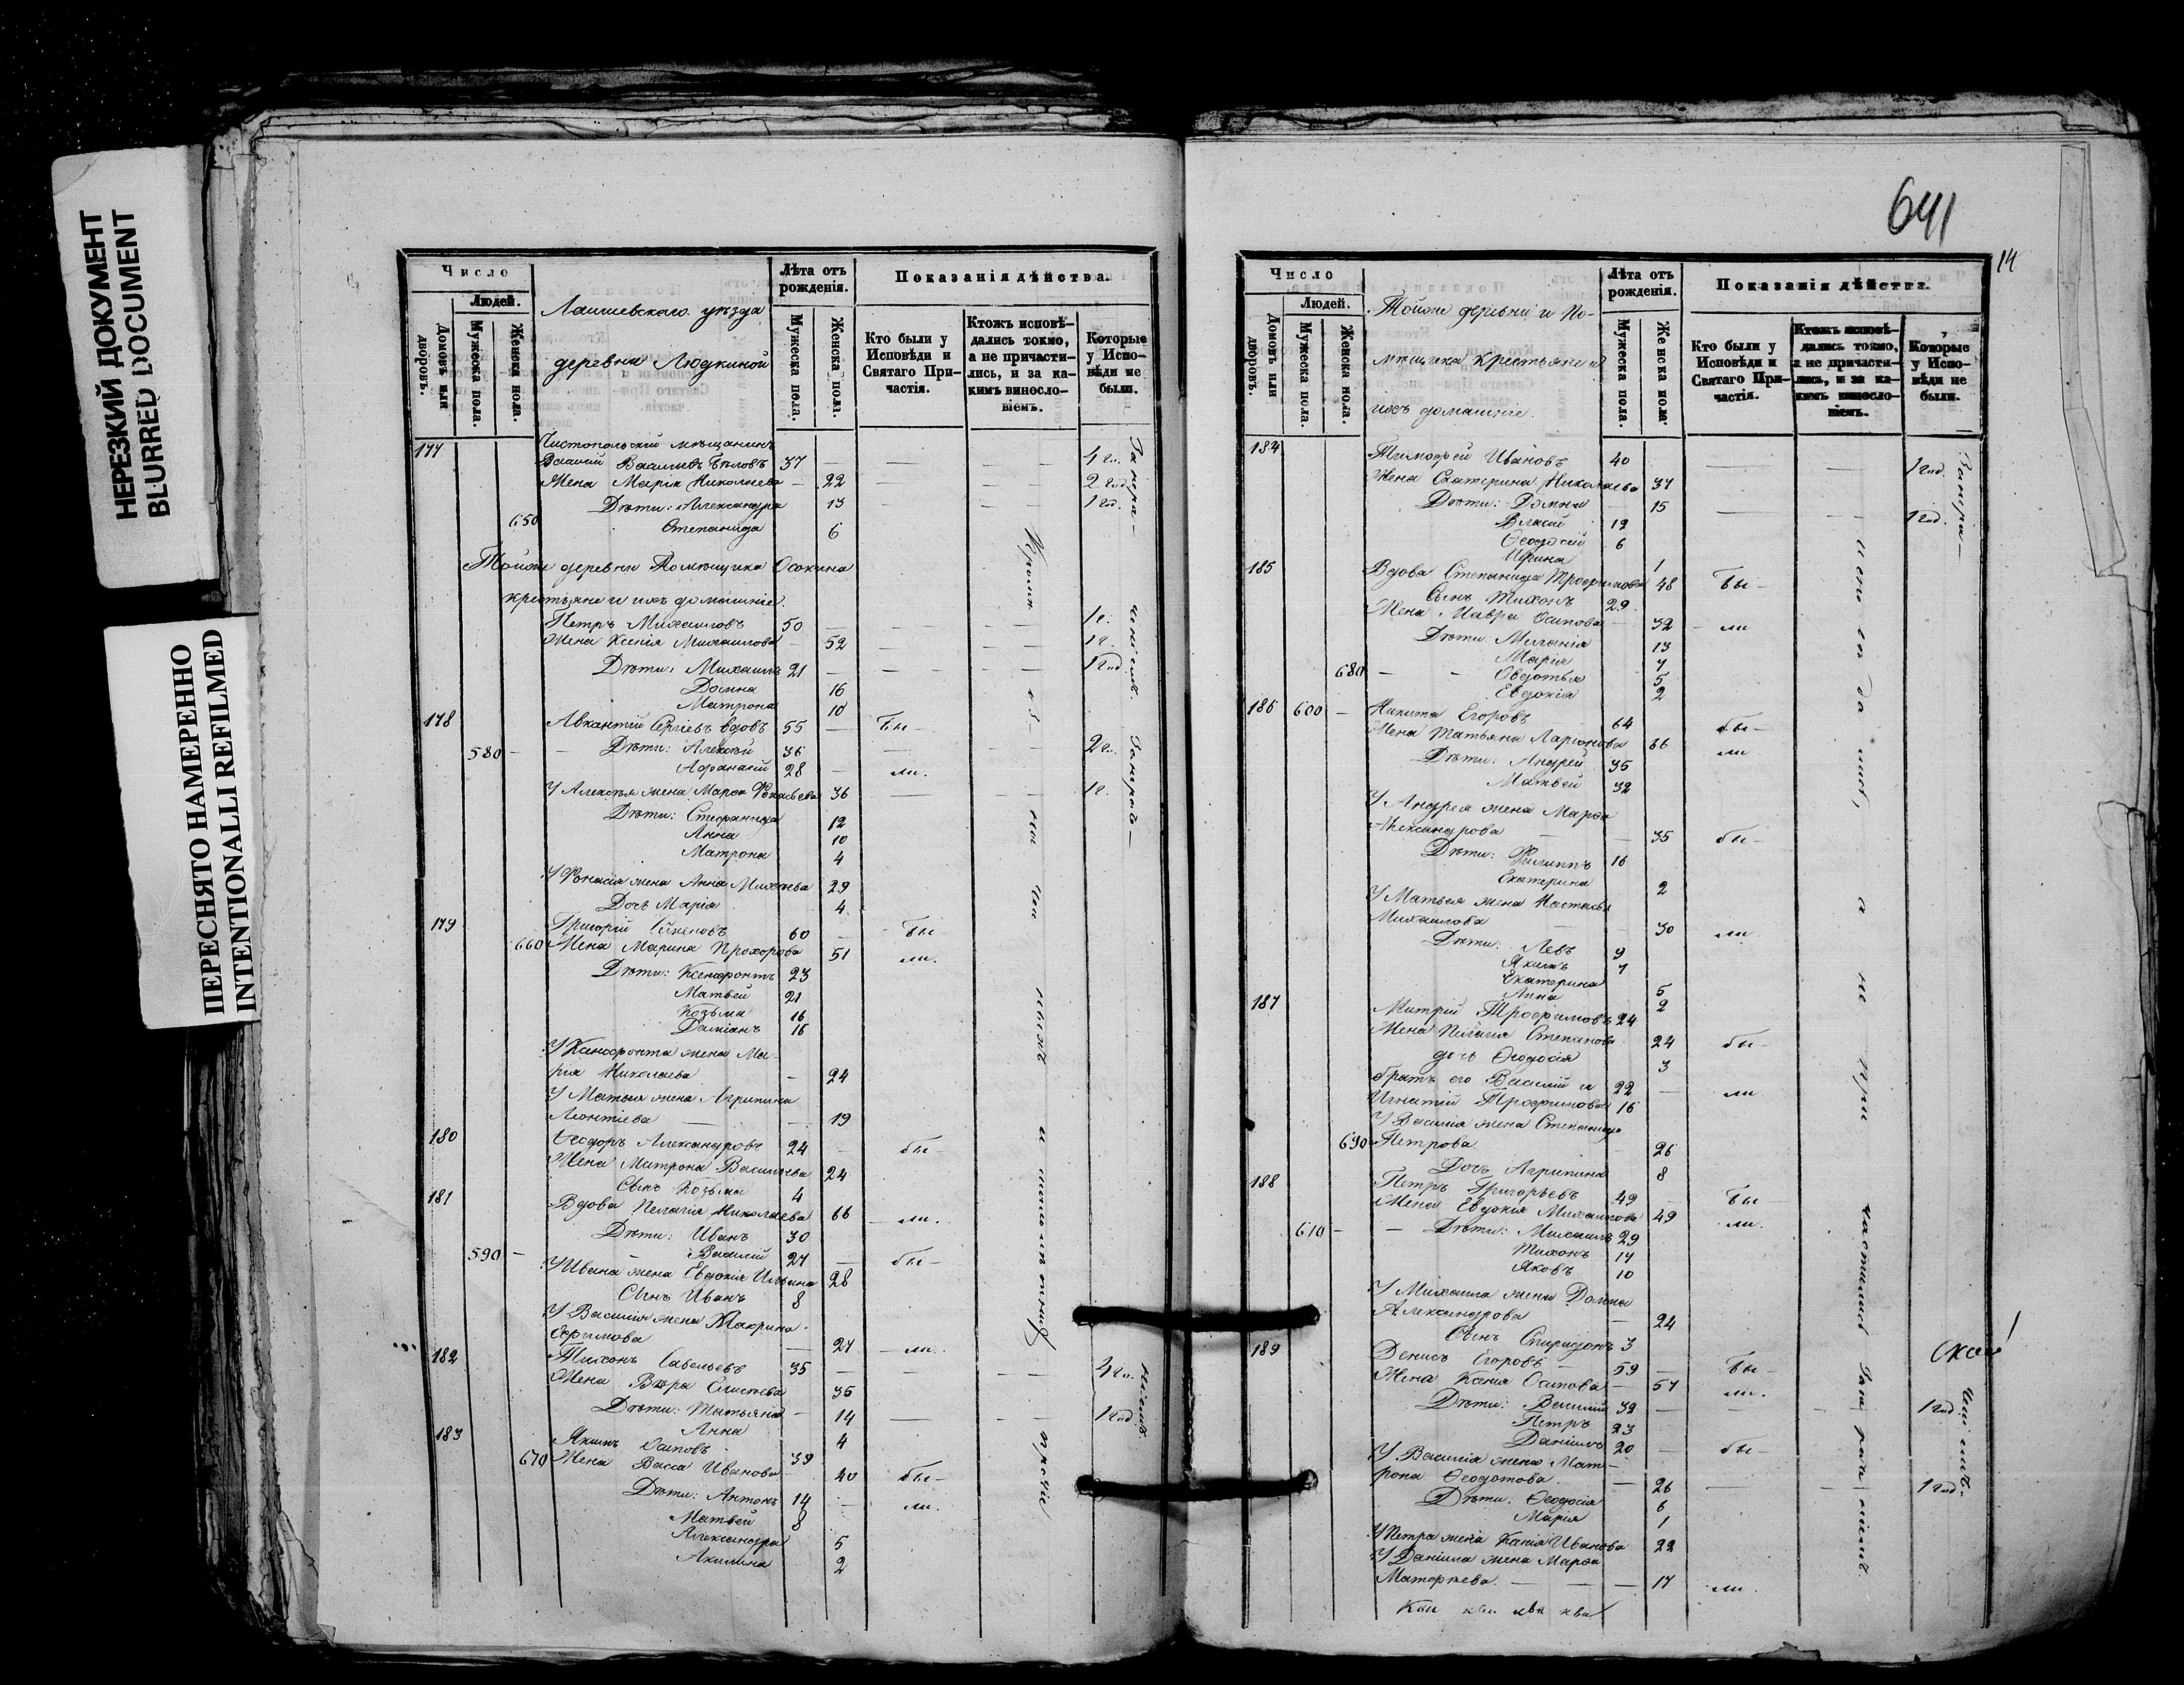 НЕРЕЗКИЙ ДОКУМЕНТ
BLURRED DOCUMENT
ПЕРЕСНЯТО НАМЕРЕННО
INTENTIONALLI REFILMED
Число
Людей.
Домовъ или дворовъ.
Мужеска пола.
Женска пола.
Лаишевскаго уѣзда
деревни Людкиной
Лѣта отъ рожденія.
Мужеска пола.
Женска пола.
Показанія дѣйства.
Кто были у Исповѣди и Святаго Причастія.
Ктожъ исповѣдались токмо, а не причастились, и за какимъ винословіемъ.
Которые у Исповѣди не были.
177 Чистопольскій мѣщанинъ
Василій Васильевъ Бѣловъ 37 — — — 4 го.
Жена Марія Николаева — 22 — — 2 год
Дѣти: Александра 13 — — 1 год.
650 Степанида 6
Тойже деревни Помѣщика Осокина
крестьяне и ихъ домашніе.
Петръ Михаиловъ 50 — — — 1 г.
Жена Ксенія Михаилова — 52 — — 1 г.
Дѣти: Михаилъ 21 — — — 1 год
Домна 16
Матрона 10
178 Сергіевъ вдовъ 55 — бы —
580 — Дѣти: Алексѣй 36 — — 2 го.
Афанасій 28 — ли.
У Алексѣя жена Марфа 36 — — 1 г.
Дѣти: Стефанида 12
Анна 10
Матрона 4
жена Анна 29
Дочь Марія 4
179 Григорій 60 — бы —
660 Жена Марина Прохорова 51 ли.
Дѣти: Ксенофонтъ 23
Матвей 21
Козьма 16
Даміанъ 16
У Ксенофонта жена Ма-
рія Николаева — 24
У Матвея жена Агрипина
Леонтіева — — 19
180 Ѳеодоръ Александровъ 24 — бы —
Жена Матрона Васильева 24
Сынъ Козьма 4
181 Вдова Пелагія Николаева 66 — ли.
Дѣти: Иванъ 30
590 — Василій 27 — бы —
У Ивана жена Евдокія Ильина 28
Сынъ Иванъ 8
У Василія жена
Ефимова — 27 — ли.
182 Тихонъ Савельевъ 35 — — — 4 го.
Жена Вѣра 35
Дѣти: Татьяна — 14 — — 1 год
Анна 4
183 Якимъ Осиповъ 39
670 Жена Васса Иванова 40 бы —
Дѣти: Антонъ 14 — ли.
Матвей 8
Александра 5
Акилина 2
641
14
Число
Людей.
Домовъ или дворовъ.
Мужеска пола.
Женска пола.
Тойже деревни и По-
мѣщика Крестьяне и
ихъ домашніе.
Лѣта отъ рожденія.
Мужеска пола.
Женска пола.
Показанія дѣйства.
Кто были у Исповѣди и Святаго Причастія.
Ктожъ исповѣдались токмо, а не причастились, и за какимъ винословіемъ.
Которые у Исповѣди не были.
184 Тимофей Ивановъ 40 — — 1 год
Жена Екатерина Николаева 37
Дѣти: Домна — 15 — — 1 год.
Власій 12
Ѳеодосій 6
Ирина 1
185 Вдова Степанида Трофимова 48 бы —
Сынъ Тихонъ 29
Жена Мавра Осипова — 32 — ли
Дѣти: Меланія 13
Марія 7
680 — — Овдотья 5
Евдокія 2
186 600 — Никита Егоровъ 64 бы —
Жена Татьяна Ларіонова 66 ли
Дѣти: Андрей 35
Матвей 32
У Андрея жена Марфа
Александрова — — 35 бы —
Дѣти: Филиппъ 16
Екатерина 2
У Матвея жена Настасья
Михаилова — 30 ли
Дѣти: Левъ 9
Якимъ 7
Екатерина 5
Анна 2
187 Митрій Трофимовъ 24
Жена Пелагія Степанова 24 бы —
дочь Ѳеодосія 3
братъ его Василій и 22 — ли
Игнатій Трофимовы 16
У Василія жена Степанида
690 Петрова — 26
Дочь Агрипина 8
188 Петръ Григорьевъ 49 — бы —
Жена Евдокія Михаилова 49 ли.
610 — — Дѣти: Михаилъ 29
Тихонъ 14
Яковъ 10
У Михаила жена Домна
Александрова — 24
Сынъ Спиридонъ 3
189 Денисъ Егоровъ — 59 — бы —
Жена Ксенія Осипова — 57 ли.
Дѣти: Василій 32 — — — 1 год
Петръ 23
Даніилъ 20 — бы —
У Василія жена Мат-
рона Ѳеодотова — 26 — — 1 год.
Дѣти: Ѳеодосія 6
Марія 1
У Петра жена Ксенія Иванова 22
У Даніила жена Марфа
— — — 17 ли.